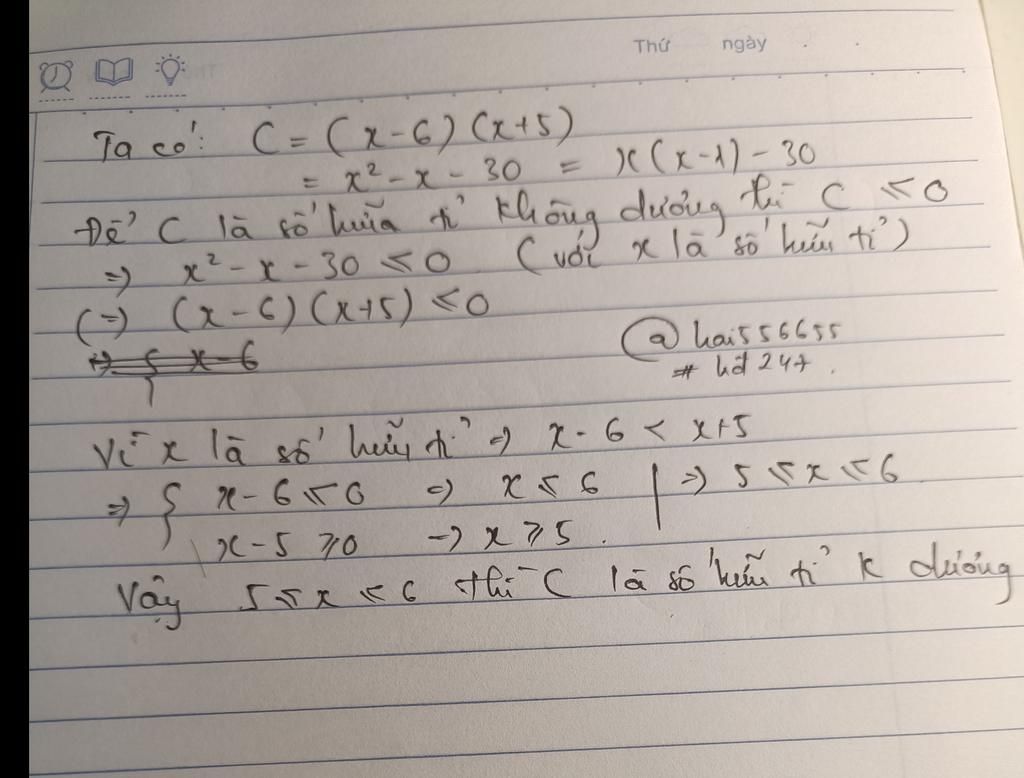 Thứ ngày
Ta có: C = (x-6)(x+5)
= x² - x - 30 = x(x-1) - 30
Để C là số hữu tỉ không dương thì C ≤ 0
=> x² - x - 30 ≤ 0 (với x là số hữu tỉ)
(=) (x-6)(x+5) ≤ 0
@hai556655
# hd247.
Vì x là số hữu tỉ => x-6 < x+5
=> { x-6 ≤ 0 => x ≤ 6 | => 5 ≤ x ≤ 6
x-5 ≥ 0 -> x ≥ 5.
Vậy 5 ≤ x ≤ 6 thì C là số hữu tỉ k dương